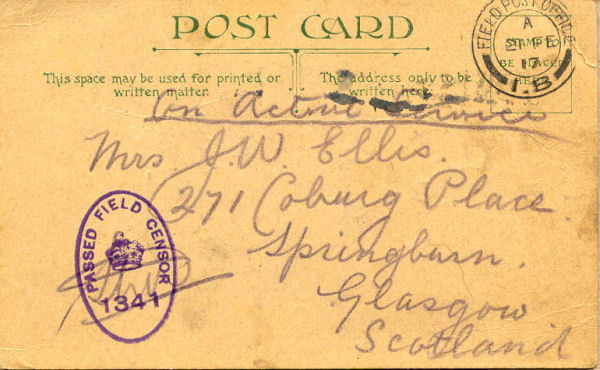 POST CARD
FIELD POST OFFICE
A
FE
17
I.B
STAMP TO
BE PLACED
HERE
This space may be used for printed or
written matter.
The address only to be
written here.
On Active Service
Mrs J.W. Ellis.
271 Coburg Place.
Springburn.
Glasgow
Scotland
PASSED FIELD CENSOR
1341